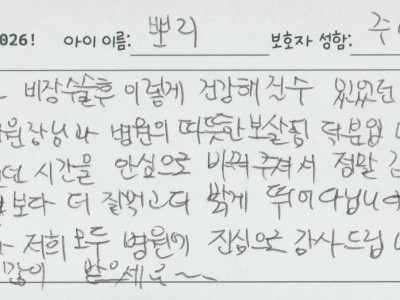 2026! 아이 이름: 뽀리 보호자 성함: 주
비장수술후 이렇게 건강해 질수 있었던
원장님과 병원의 따뜻한 보살핌 덕분입
던 시간을 안심으로 바꿔 주셔서 정말 감
보다 더 잘먹고 더 밝게 뛰어 다닙니다
저희 모두 병원에 진심으로 감사드립
많이 받으세요~~